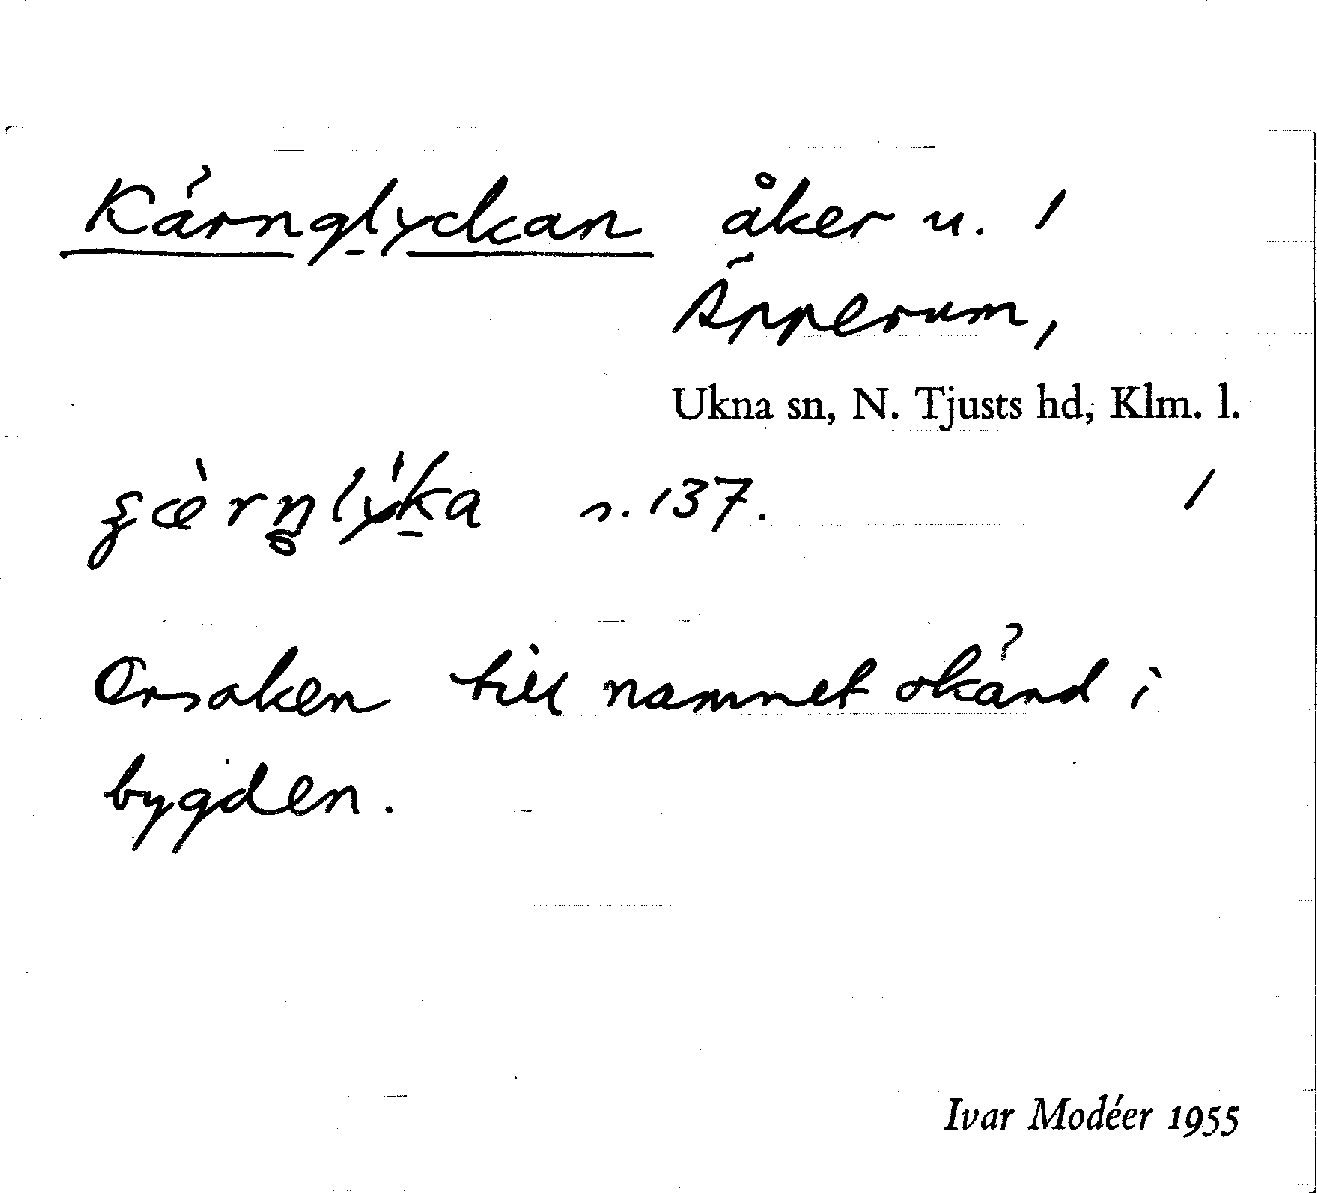 Kärnglyckan åker u. 1
Äpperum,
Ukna sn, N. Tjusts hd, Klm. l.
s. 137. 1
Orsaken till namnet okänd i
bygden.
Ivar Modéer 1955